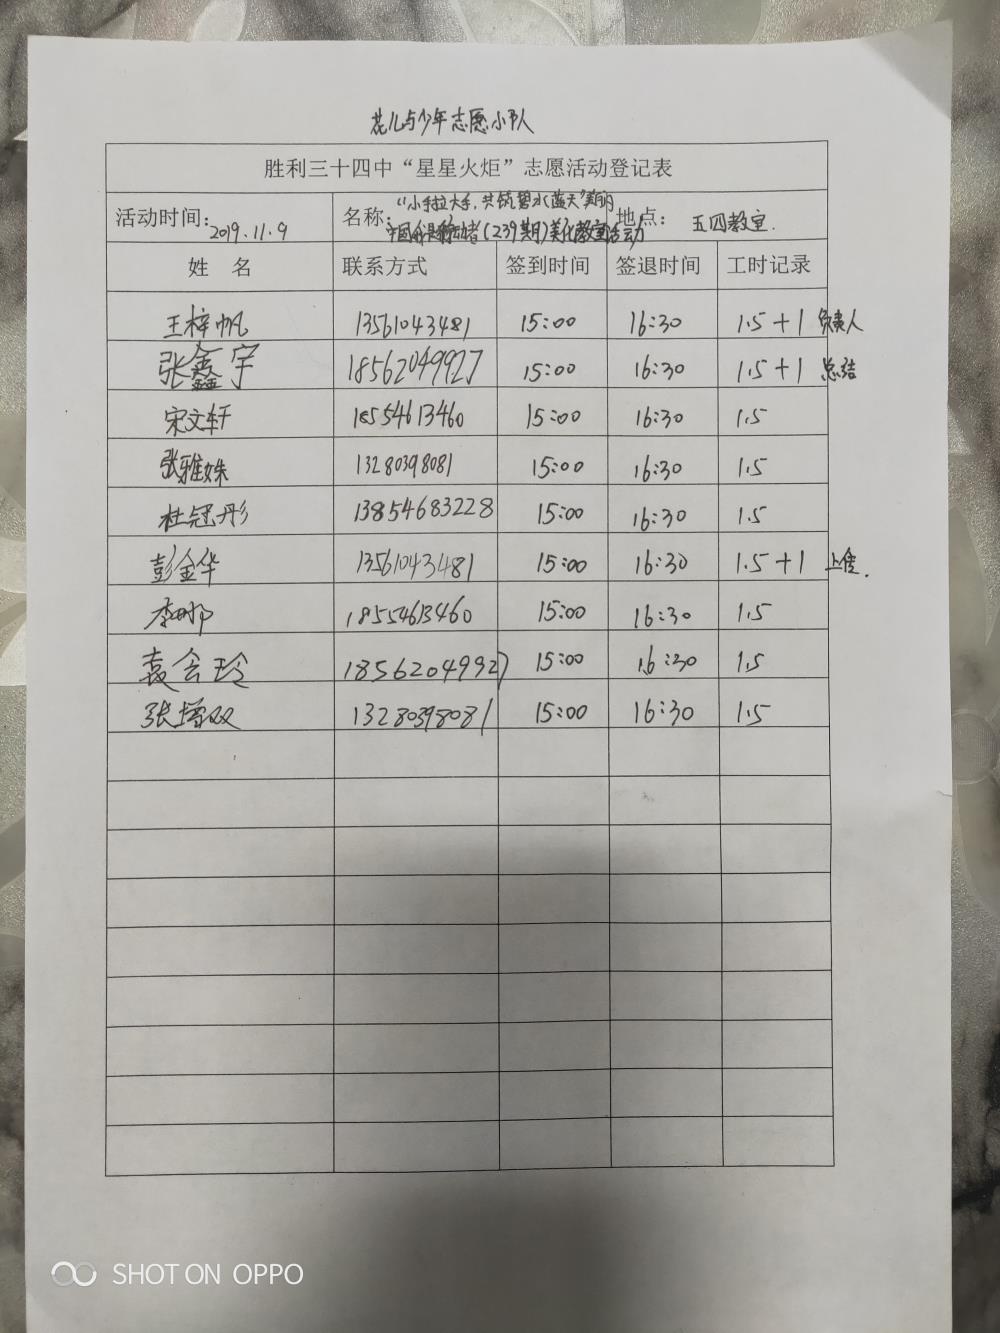 花儿与少年志愿小队
胜利三十四中“星星火炬”志愿活动登记表
活动时间: 2019.11.9 名称: “小手拉大手,共筑碧水蓝天”美丽 中国行动者(239期)美化教室活动 地点: 五四教室.
姓 名 联系方式 签到时间 签退时间 工时记录
王梓帆 13561043481 15:00 16:30 1.5+1 负责人
张鑫宇 18562049927 15:00 16:30 1.5+1 总结
宋文轩 18554613460 15:00 16:30 1.5
张雅姝 13280398081 15:00 16:30 1.5
杜冠彤 13854683228 15:00 16:30 1.5
彭金华 13561043481 15:00 16:30 1.5+1 上传.
18554613460 15:00 16:30 1.5
袁会玲 18562049927 15:00 16:30 1.5
张增双 13280398081 15:00 16:30 1.5
SHOT ON OPPO